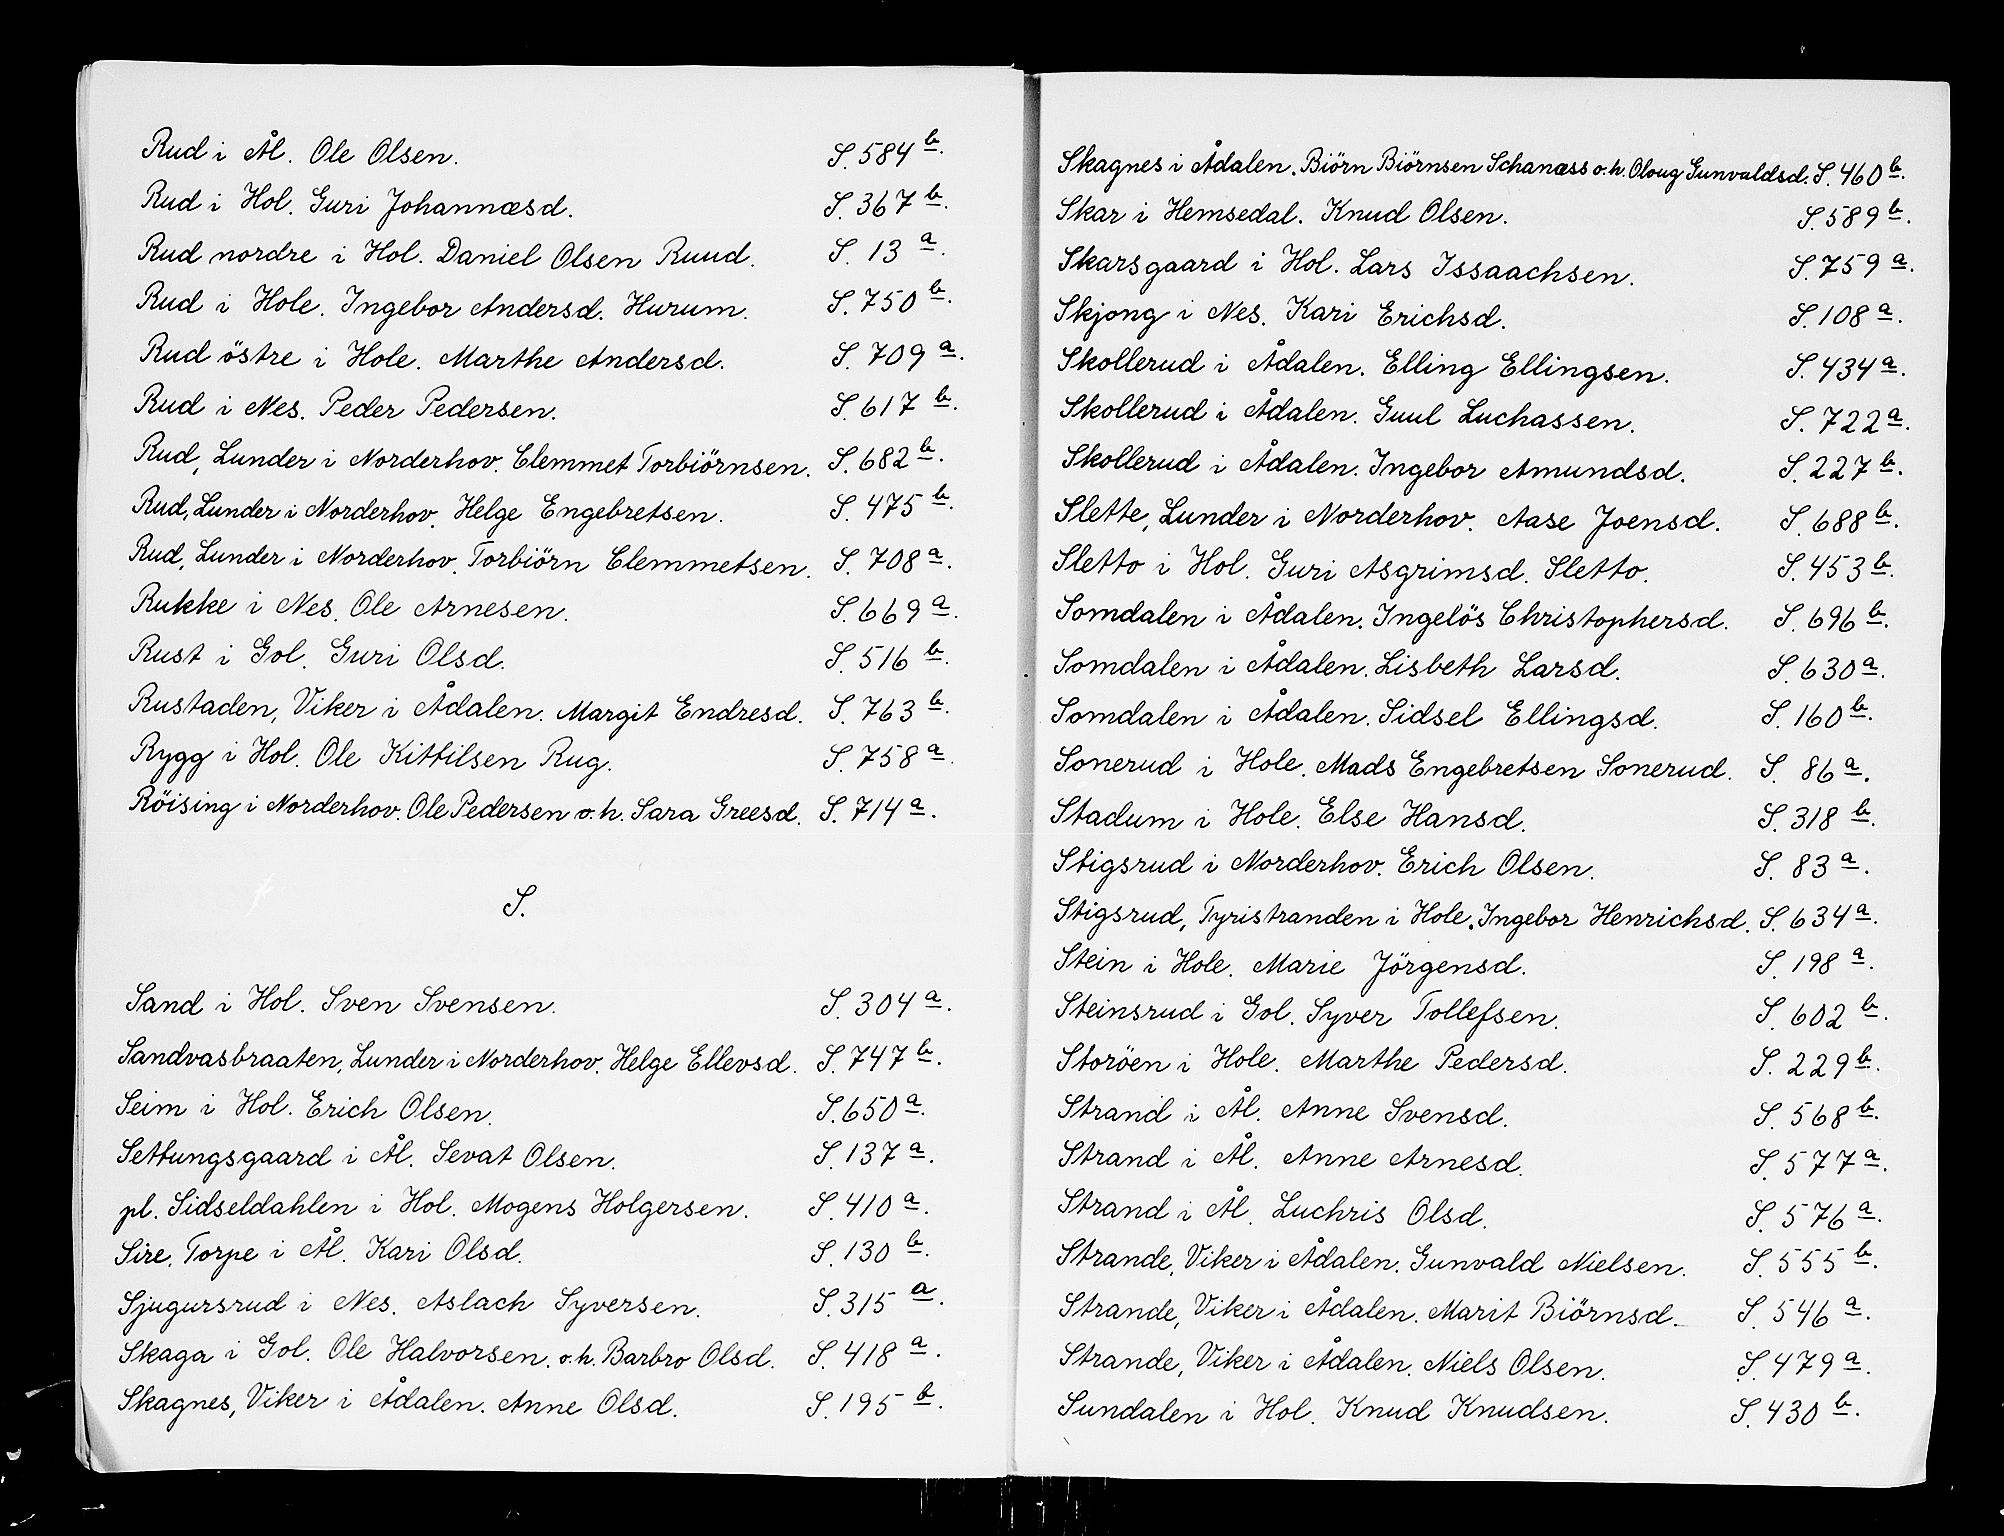 Rud i Ål. Ole Olsen. S. 584 b.
Rud i Hol. Guri Johannæsd. S. 367 b.
Rud nordre i Hol. Daniel Olsen Ruud. S. 13 a.
Rud i Hole. Ingebor Andersd. Hurum. S. 750 b.
Rud östre i Hole. Marthe Andersd. S. 709 a.
Rud i Nes. Peder Pedersen. S. 617 b.
Rud, Lunder i Norderhov. Clemmet Torbiörnsen. S. 682 b.
Rud, Lunder i Norderhov. Helge Engebretsen. S. 475 b.
Rud, Lunder i Norderhov. Torbiörn Clemmetsen. S. 708 a.
Rukke i Nes. Ole Arnesen. S. 669 a.
Rust i Gol. Guri Olsd. S. 516 b.
Rustaden, Viker i Ådalen. Margit Endresd. S. 763 b.
Rygg i Hol. Ole Kittilsen Rug. S. 758 a.
Röising i Norderhov. Ole Pedersen o.h. Sara Greesd. S. 714 a.
S.
Sand i Hol. Sven Svensen. S. 304 a.
Sandvasbraaten, Lunder i Norderhov. Helge Ellevsd. S. 747 b.
Seim i Hol. Erich Olsen. S. 650 a.
Settungsgaard i Ål. Sevat Olsen. S. 137 a.
pl. Sidseldahlen i Hol. Mogens Holgersen. S. 410 a.
Sire, Torpe i Ål. Kari Olsd. S. 130 b.
Sjugursrud i Nes. Aslach Syversen. S. 315 a.
Skaga i Gol. Ole Halvorsen. o.h. Barbro Olsd. S. 418 a.
Skagnes, Viker i Ådalen. Anne Olsd. S. 195 b.
Skagnes i Ådalen. Biörn Biörnsen Schanæss o.h. Oloug Gunvaldsd. S. 460 b.
Skar i Hemsedal. Knud Olsen. S. 589 b.
Skarsgaard i Hol. Lars Issaachsen. S. 759 a.
Skjong i Nes. Kari Erichsd. S. 108 a.
Skollerud i Ådalen. Elling Ellingsen. S. 434 a.
Skollerud i Ådalen. Guul Luchassen. S. 722 a.
Skollerud i Ådalen. Ingebor Amundsd. S. 227 b.
Slette, Lunder i Norderhov. Aase Joensd. S. 688 b.
Sletto i Hol. Guri Asgrimsd. Sletto. S. 453 b.
Somdalen i Ådalen. Ingelös Christophersd. S. 696 b.
Somdalen i Ådalen. Lisbeth Larsd. S. 630 a.
Somdalen i Ådalen. Sidsel Ellingsd. S. 160 b.
Sonerud i Hole. Mads Engebretsen Sonerud. S. 86 a.
Stadum i Hole. Else Hansd. S. 318 b.
Stigsrud i Norderhov. Erich Olsen. S. 83 a.
Stigsrud, Tyristranden i Hole. Ingebor Henrichsd. S. 634 a.
Stein i Hole. Marie Jörgensd. S. 198 a.
Steinsrud i Gol. Syver Tollefsen. S. 602 b.
Storöen i Hole. Marthe Pedersd. S. 229 b.
Strand i Ål. Anne Svensd. S. 568 b.
Strand i Ål. Anne Arnesd. S. 577 a.
Strand i Ål. Luchris Olsd. S. 576 a.
Strande, Viker i Ådalen. Gunvald Nielsen. S. 555 b.
Strande, Viker i Ådalen. Marit Biörnsd. S. 546 a.
Strande, Viker i Ådalen. Niels Olsen. S. 479 a.
Sundalen i Hol. Knud Knudsen. S. 430 b.